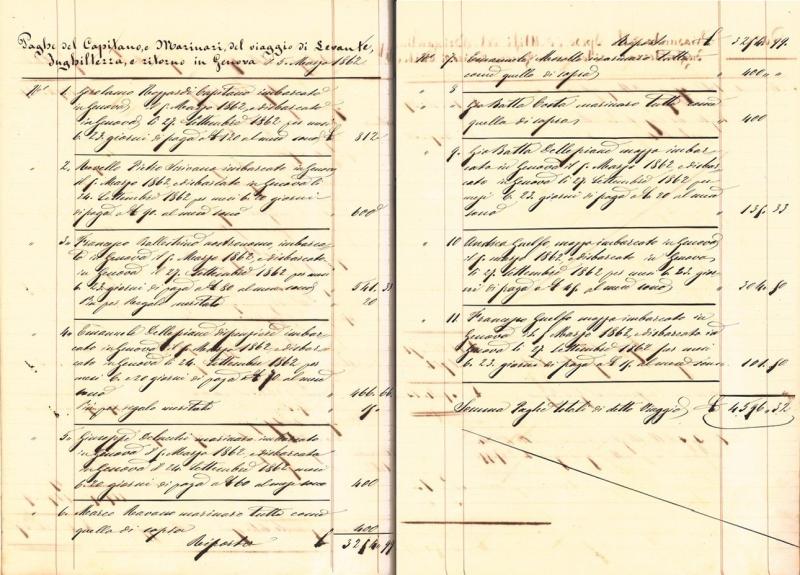 Paghe del Capitano, e Marinari, del viaggio di Levante,
Inghilterra, e ritorno in Genova 5. Marzo 1862
N.° 1. Girolamo Capitano imbarcato
in Genova Marzo 1862, e disbarcato
in Genova li 27. Settembre 1862 per mesi
6. 23. giorni di paga a £ 120 al mese sono £ 812
" 2. Pietro Scrivano imbarcato in Genova
il Marzo 1862, e disbarcato in Genova li
24. Settembre 1862 per mesi 6. 20 giorni
di paga a £ 90 al mese sono " 600
" 3. Francesco Ballestrino nostromo, imbarca-
to in Genova il Marzo 1862, e disbarcato
in Genova il 27. Settembre 1862 per mesi
6. 23 giorni di paga a £ 80 al mese sono " 541. 33
Più per Regalo meritato 20
" 4. Emanuele Dellepiane dispensiere imbar-
cato in Genova il Marzo 1862, e disbar-
cato in Genova li 24. Settembre 1862 per
mesi 6. e 20 giorni di paga a £ 70 al mese
sono " 466. 66
Più per regalo meritato "
" 5. Giuseppe marinaro imbarcato
in Genova il Marzo 1862, e disbarcato
in Genova il 24. Settembre 1862 mesi
6. 20 giorni di paga a £ 60 al mese sono 400
" 6. Marco Ravano marinaro tutto come
quello di sopra 400
Riporto £
Riporto £
N.° 7. Emanuele marinaro tutto
come quello di sopra " 400 " "
" 8
Gio Batta Costa marinaro tutto come
quello di sopra " 400
" 9. Gio Batta Dellepiane mozzo imbar-
cato in Genova il Marzo 1862 e disbar-
cato in Genova li 27. Settembre 1862 per
mesi 6. 23. giorni di paga a £ 20 al mese
sono " 135. 33
" 10. Andrea Guelfo mozzo imbarcato in Genova
il Marzo 1862, e disbarcato in Genova
li 27. Settembre 1862 per mesi 6. 23. gior-
ni di paga a £ 45. al mese sono " 304. 50
" 11. Francesco Guelfo mozzo imbarcato in
Genova il Marzo 1862 e disbarcato in
Genova li 27. Settembre 1862 per mesi
6. 23. giorni di paga a £ al mese sono " 101. 50
Somma Paghe totali di detto Viaggio £ 4596. 32